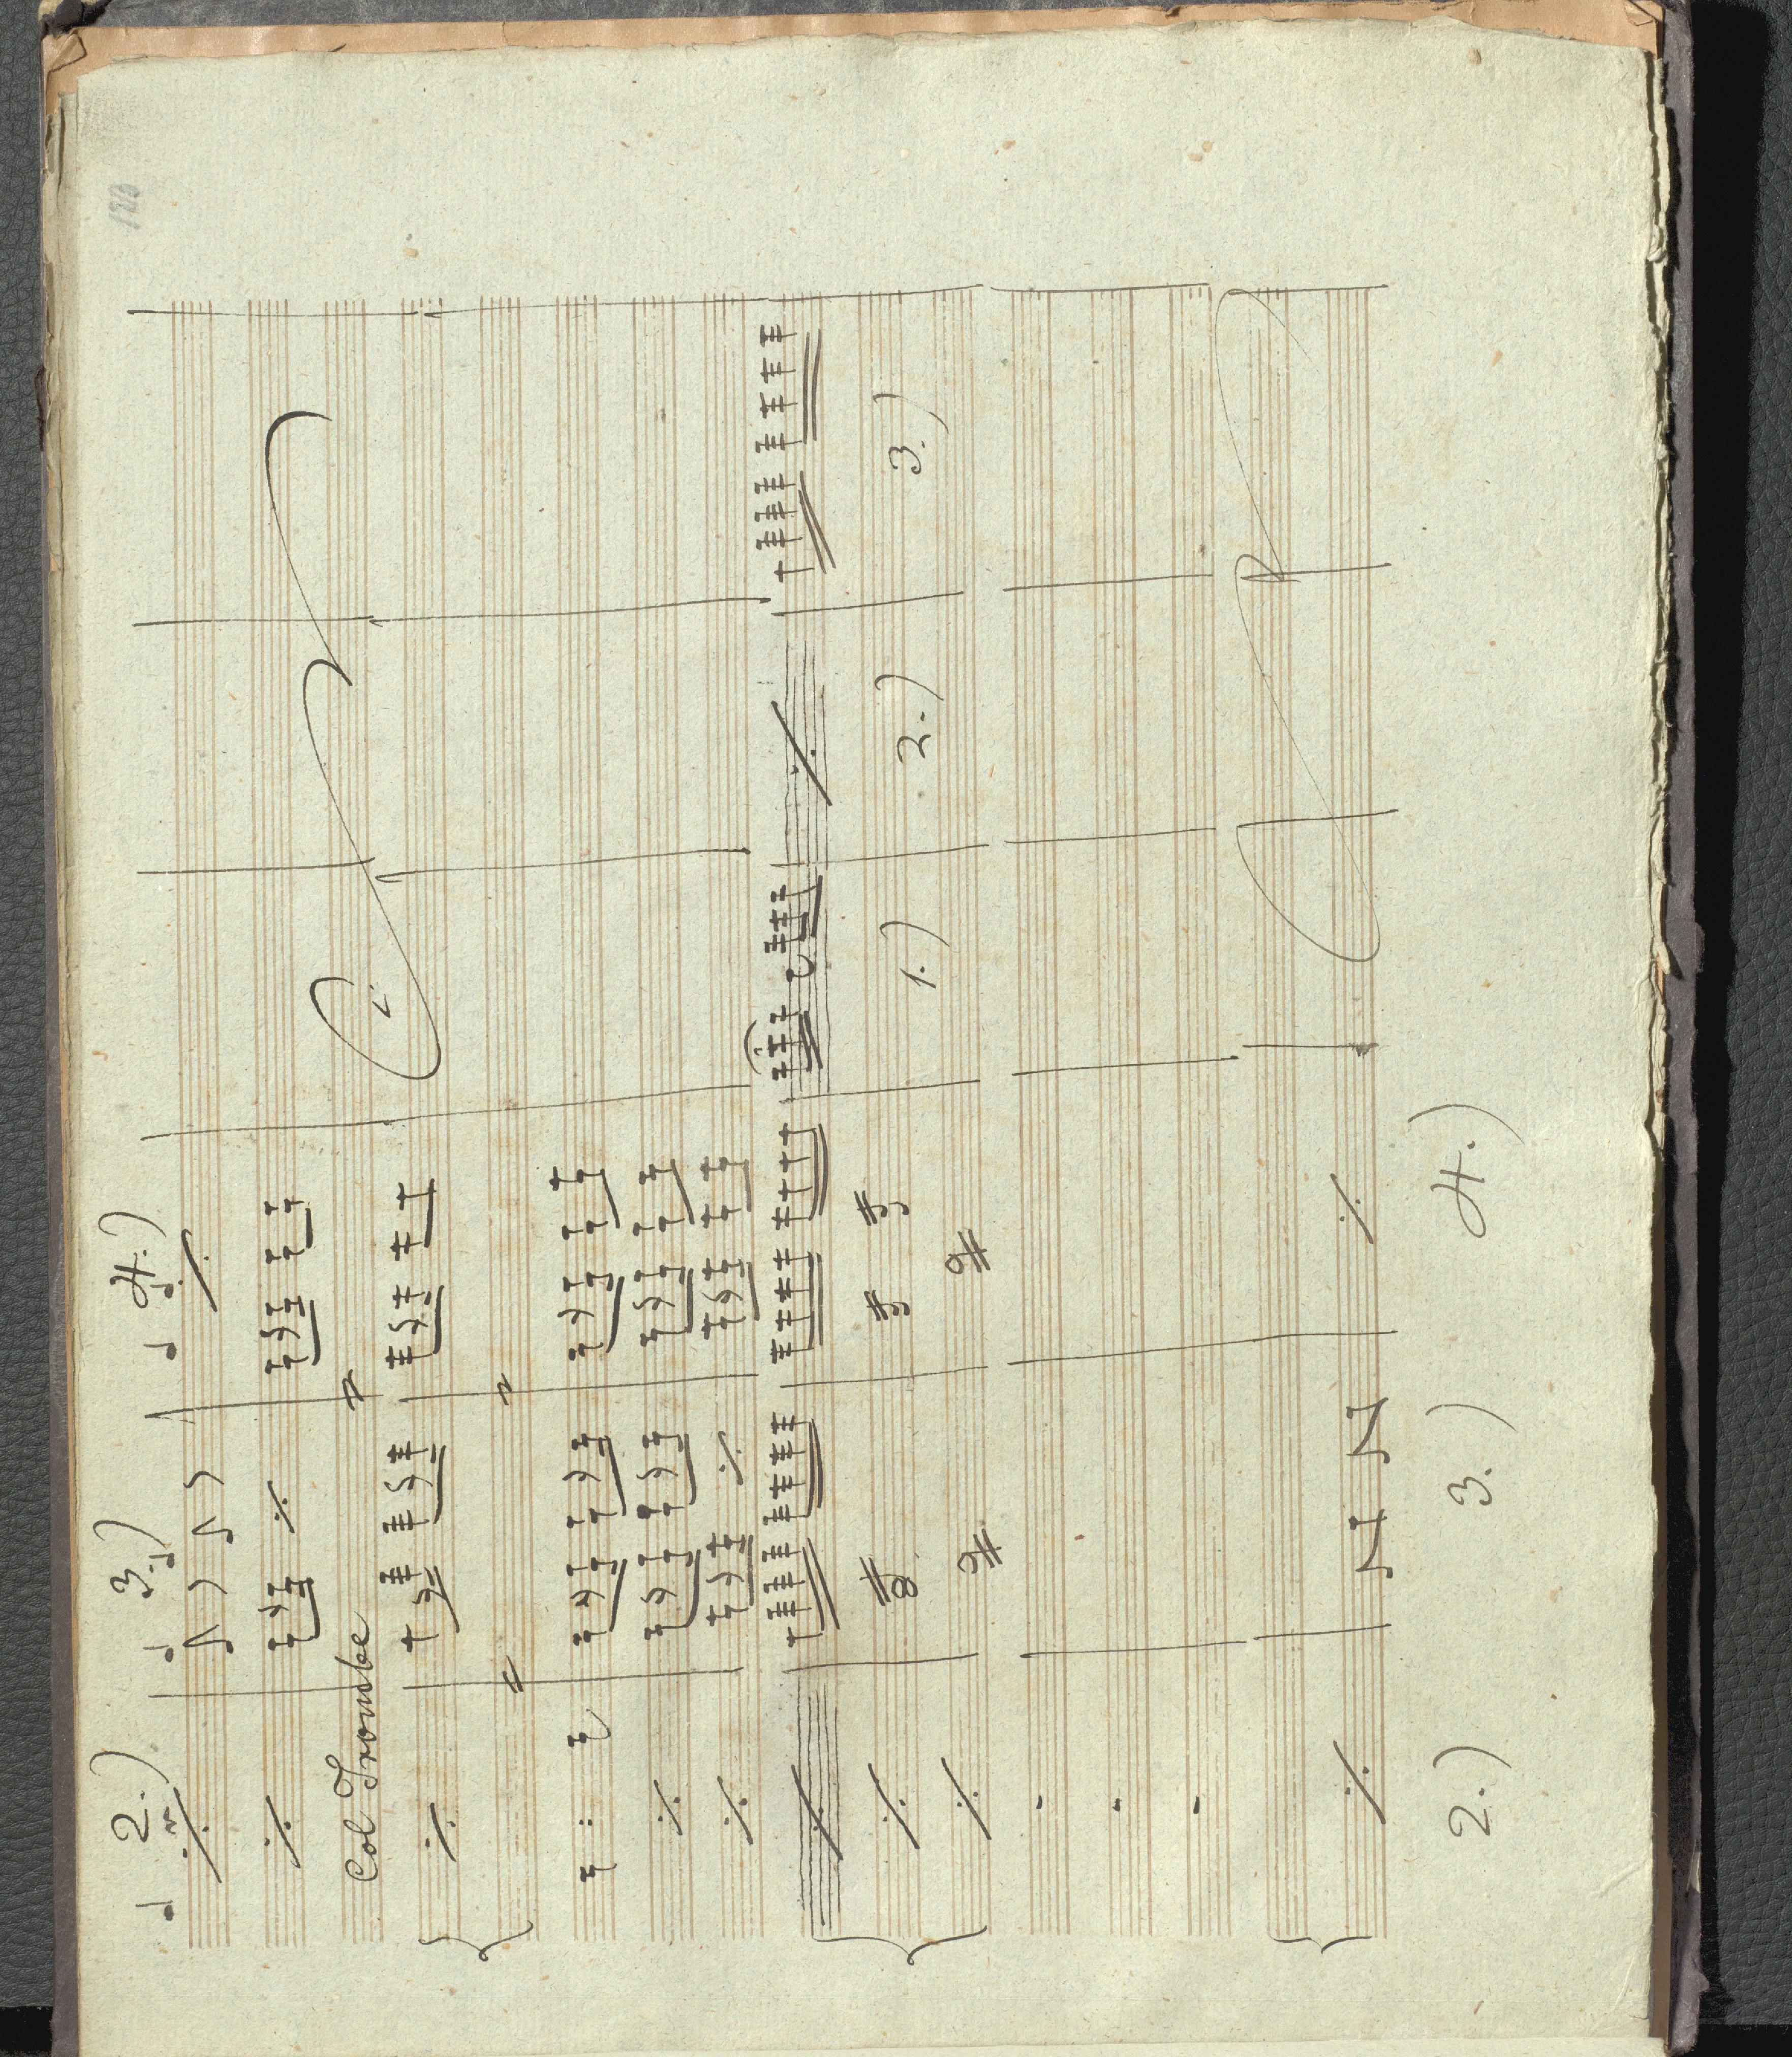 123
2.) 3.) 4.)
Col Trombe
1.) 2.) 3.)
2.) 3.) 4.)